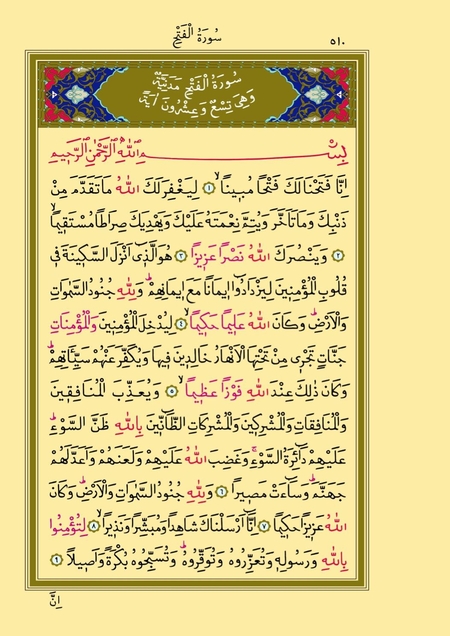 سُورَةُ الْفَتْحِ ٥١٠
سُورَةُ الْفَتْحِ مَدَنِيَّةٌ
وَهِيَ تِسْعٌ وَعِشْرُونَ اٰيَةً
بِسْمِ اللّٰهِ الرَّحْمٰنِ الرَّحِيمِ
اِنَّا فَتَحْنَا لَكَ فَتْحًا مُبِينًاۙ ﴿١﴾ لِيَغْفِرَ لَكَ اللّٰهُ مَا تَقَدَّمَ مِنْ
ذَنْبِكَ وَمَا تَاَخَّرَ وَيُتِمَّ نِعْمَتَهُ عَلَيْكَ وَيَهْدِيَكَ صِرَاطًا مُسْتَقِيمًاۙ
﴿٢﴾ وَيَنْصُرَكَ اللّٰهُ نَصْرًا عَزِيزًا ﴿٣﴾ هُوَ الَّذِي اَنْزَلَ السَّكِينَةَ فِي
قُلُوبِ الْمُؤْمِنِينَ لِيَزْدَادُوا اِيمَانًا مَعَ اِيمَانِهِمْۜ وَلِلّٰهِ جُنُودُ السَّمٰوَاتِ
وَالْاَرْضِۜ وَكَانَ اللّٰهُ عَلِيمًا حَكِيمًاۙ ﴿٤﴾ لِيُدْخِلَ الْمُؤْمِنِينَ وَالْمُؤْمِنَاتِ
جَنَّاتٍ تَجْرِي مِنْ تَحْتِهَا الْاَنْهَارُ خَالِدِينَ فِيهَا وَيُكَفِّرَ عَنْهُمْ سَيِّـَٔاتِهِمْۜ
وَكَانَ ذٰلِكَ عِنْدَ اللّٰهِ فَوْزًا عَظِيمًاۙ ﴿٥﴾ وَيُعَذِّبَ الْمُنَافِقِينَ
وَالْمُنَافِقَاتِ وَالْمُشْرِكِينَ وَالْمُشْرِكَاتِ الظَّٓانِّينَ بِاللّٰهِ ظَنَّ السَّوْءِۜ
عَلَيْهِمْ دَٓائِرَةُ السَّوْءِۚ وَغَضِبَ اللّٰهُ عَلَيْهِمْ وَلَعَنَهُمْ وَاَعَدَّ لَهُمْ
جَهَنَّمَۜ وَسَٓاءَتْ مَصِيرًا ﴿٦﴾ وَلِلّٰهِ جُنُودُ السَّمٰوَاتِ وَالْاَرْضِۜ وَكَانَ
اللّٰهُ عَزِيزًا حَكِيمًا ﴿٧﴾ اِنَّٓا اَرْسَلْنَاكَ شَاهِدًا وَمُبَشِّرًا وَنَذِيرًاۙ ﴿٨﴾ لِتُؤْمِنُوا
بِاللّٰهِ وَرَسُولِهِ وَتُعَزِّرُوهُ وَتُوَقِّرُوهُۜ وَتُسَبِّحُوهُ بُكْرَةً وَاَصِيلًا ﴿٩﴾
اِنَّ